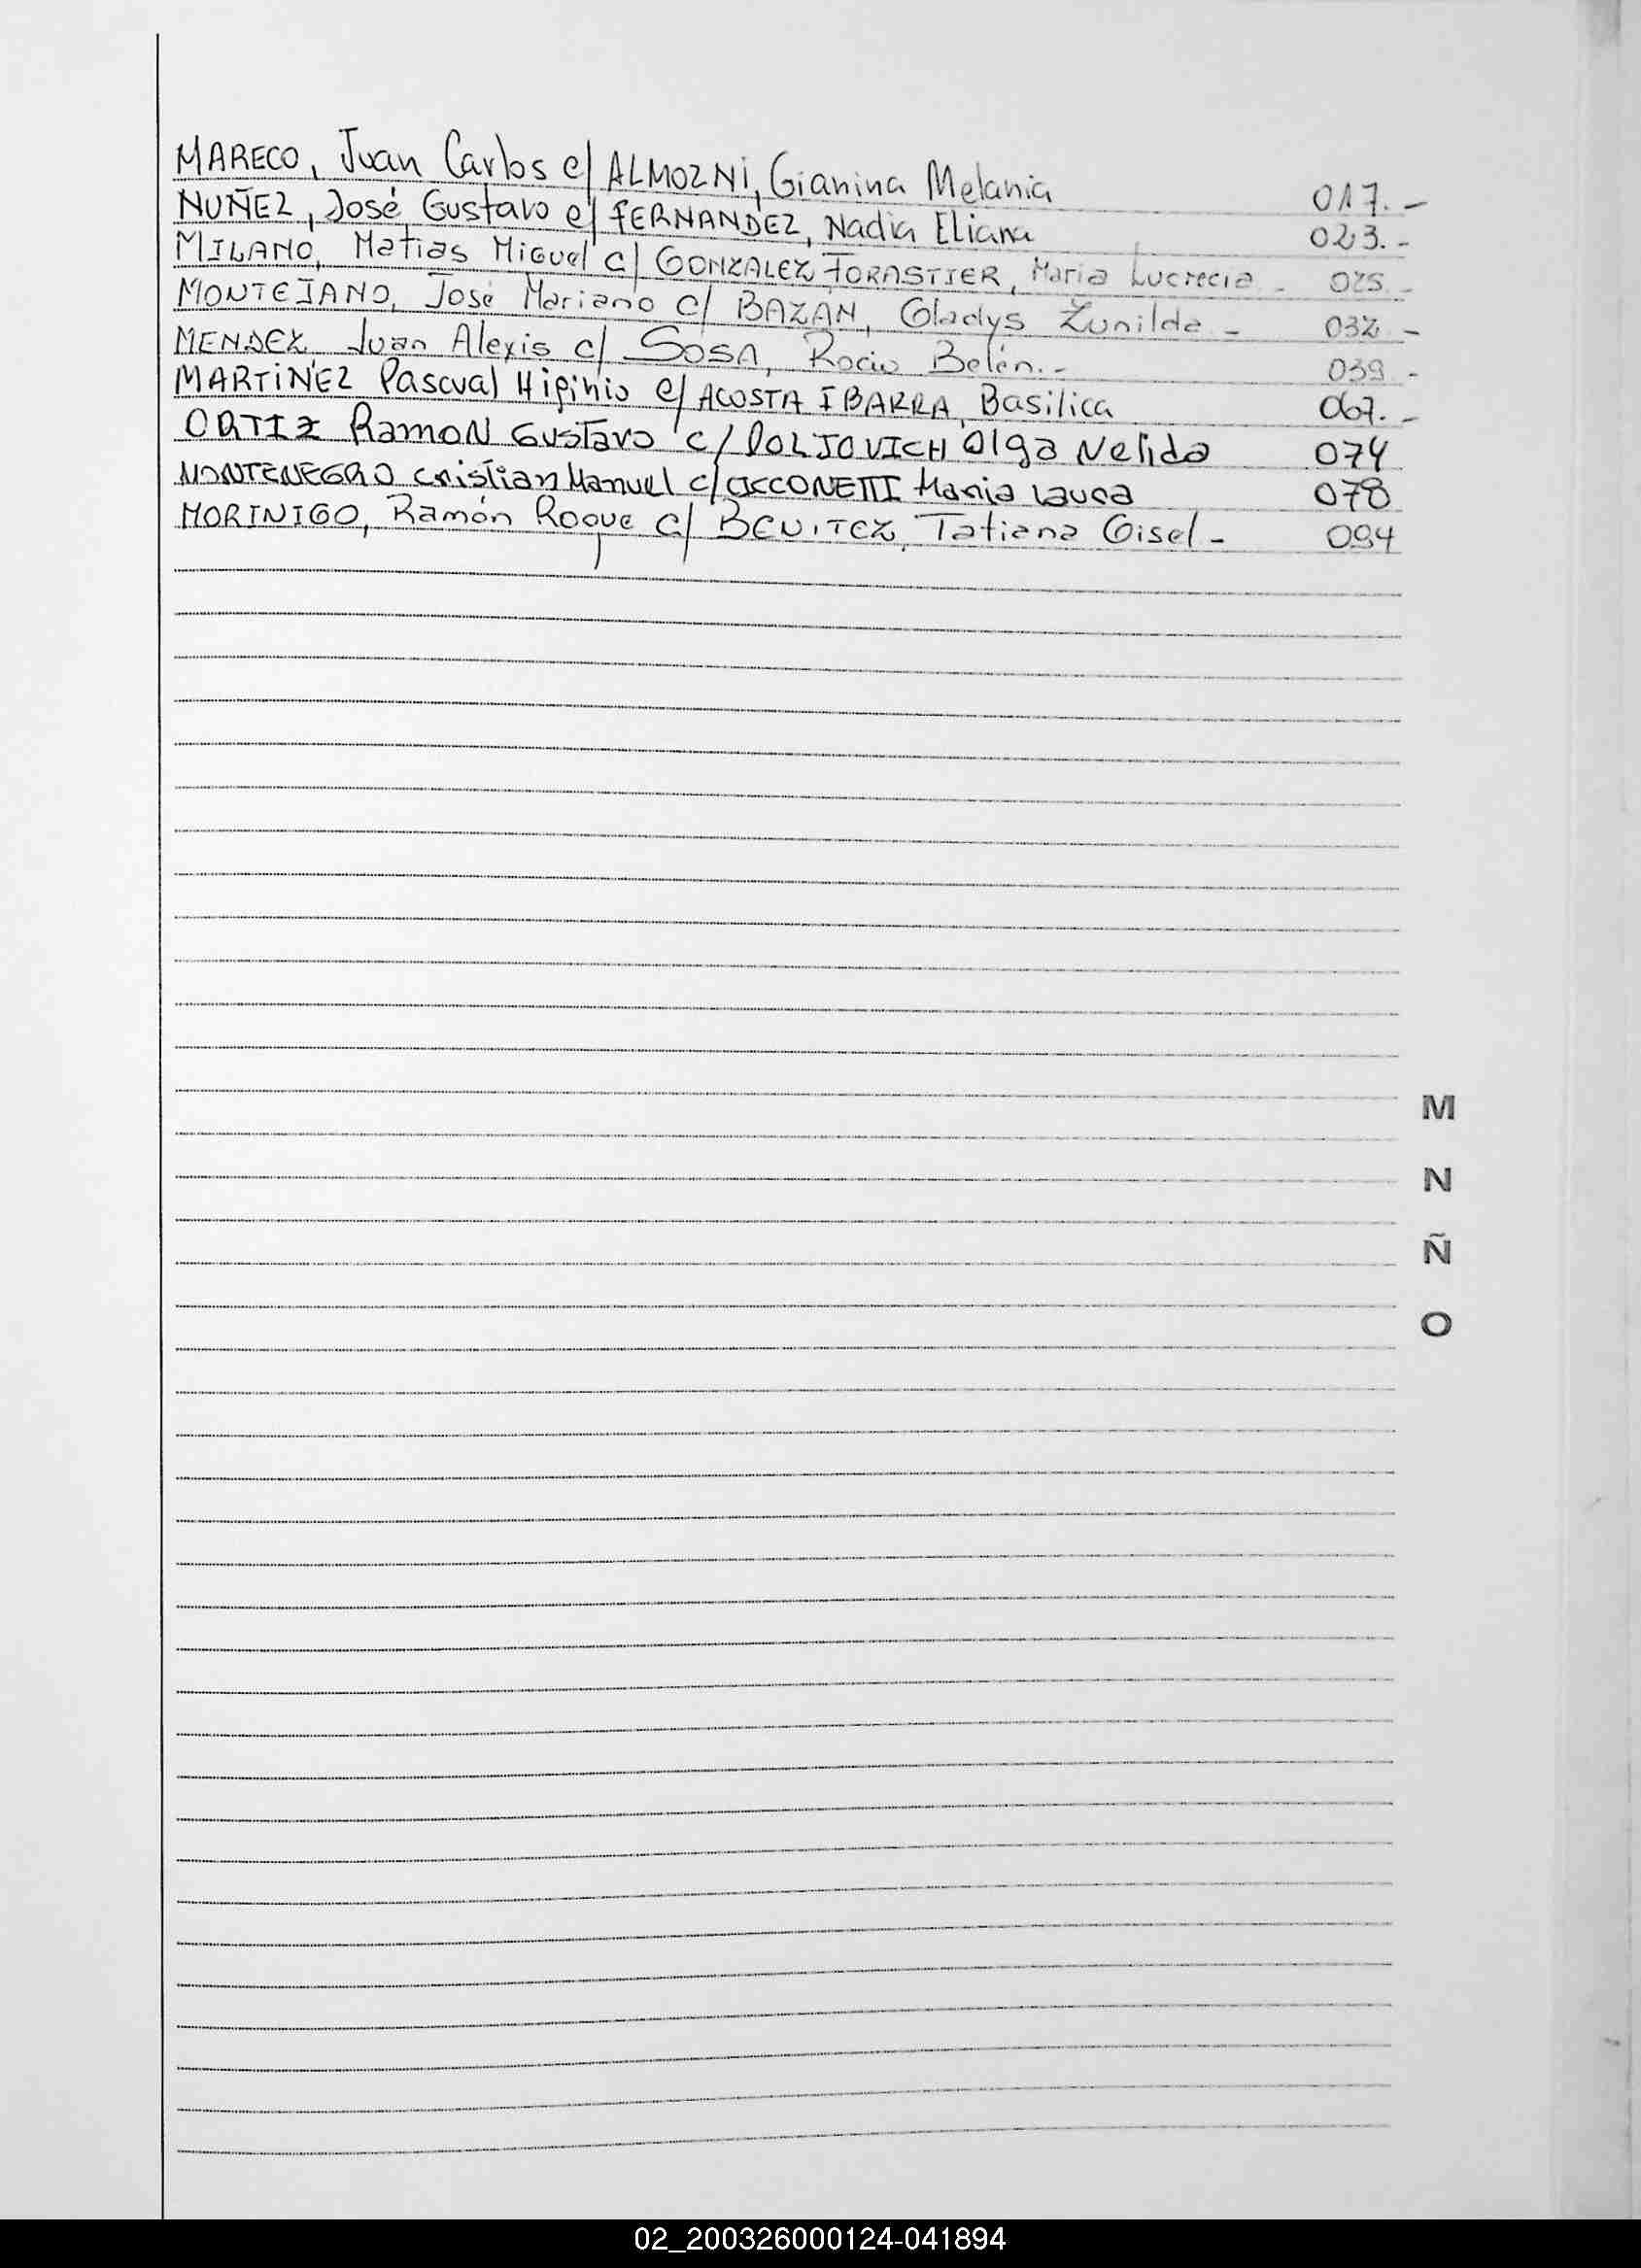 MARECO, Juan Carlos c/ ALMOZNI, Gianina Melania 017.-
NUÑEZ, José Gustavo c/ FERNANDEZ, Nadia Eliana 023.-
MILANO, Matias Miguel c/ GONZALEZ FORASTIER, Maria Lucrecia - 025 -
MONTEJANO, José Mariano c/ BAZÁN, Gladys Zunilda - 032 -
MENDEZ, Juan Alexis c/ SOSA, Rocio Belén.- 039 -
MARTINEZ Pascual Higinio c/ ACOSTA IBARRA, Basilica 067.-
ORTIZ Ramon Gustavo c/ POLJOVICH Olga Nelida 074
MONTENEGRO Cristian Manuel c/ CICCONETTI Maria Laura 078
MORINIGO, Ramón Roque c/ BENITEZ, Tatiana Gisel - 094
M
N
Ñ
O
02_200326000124-041894